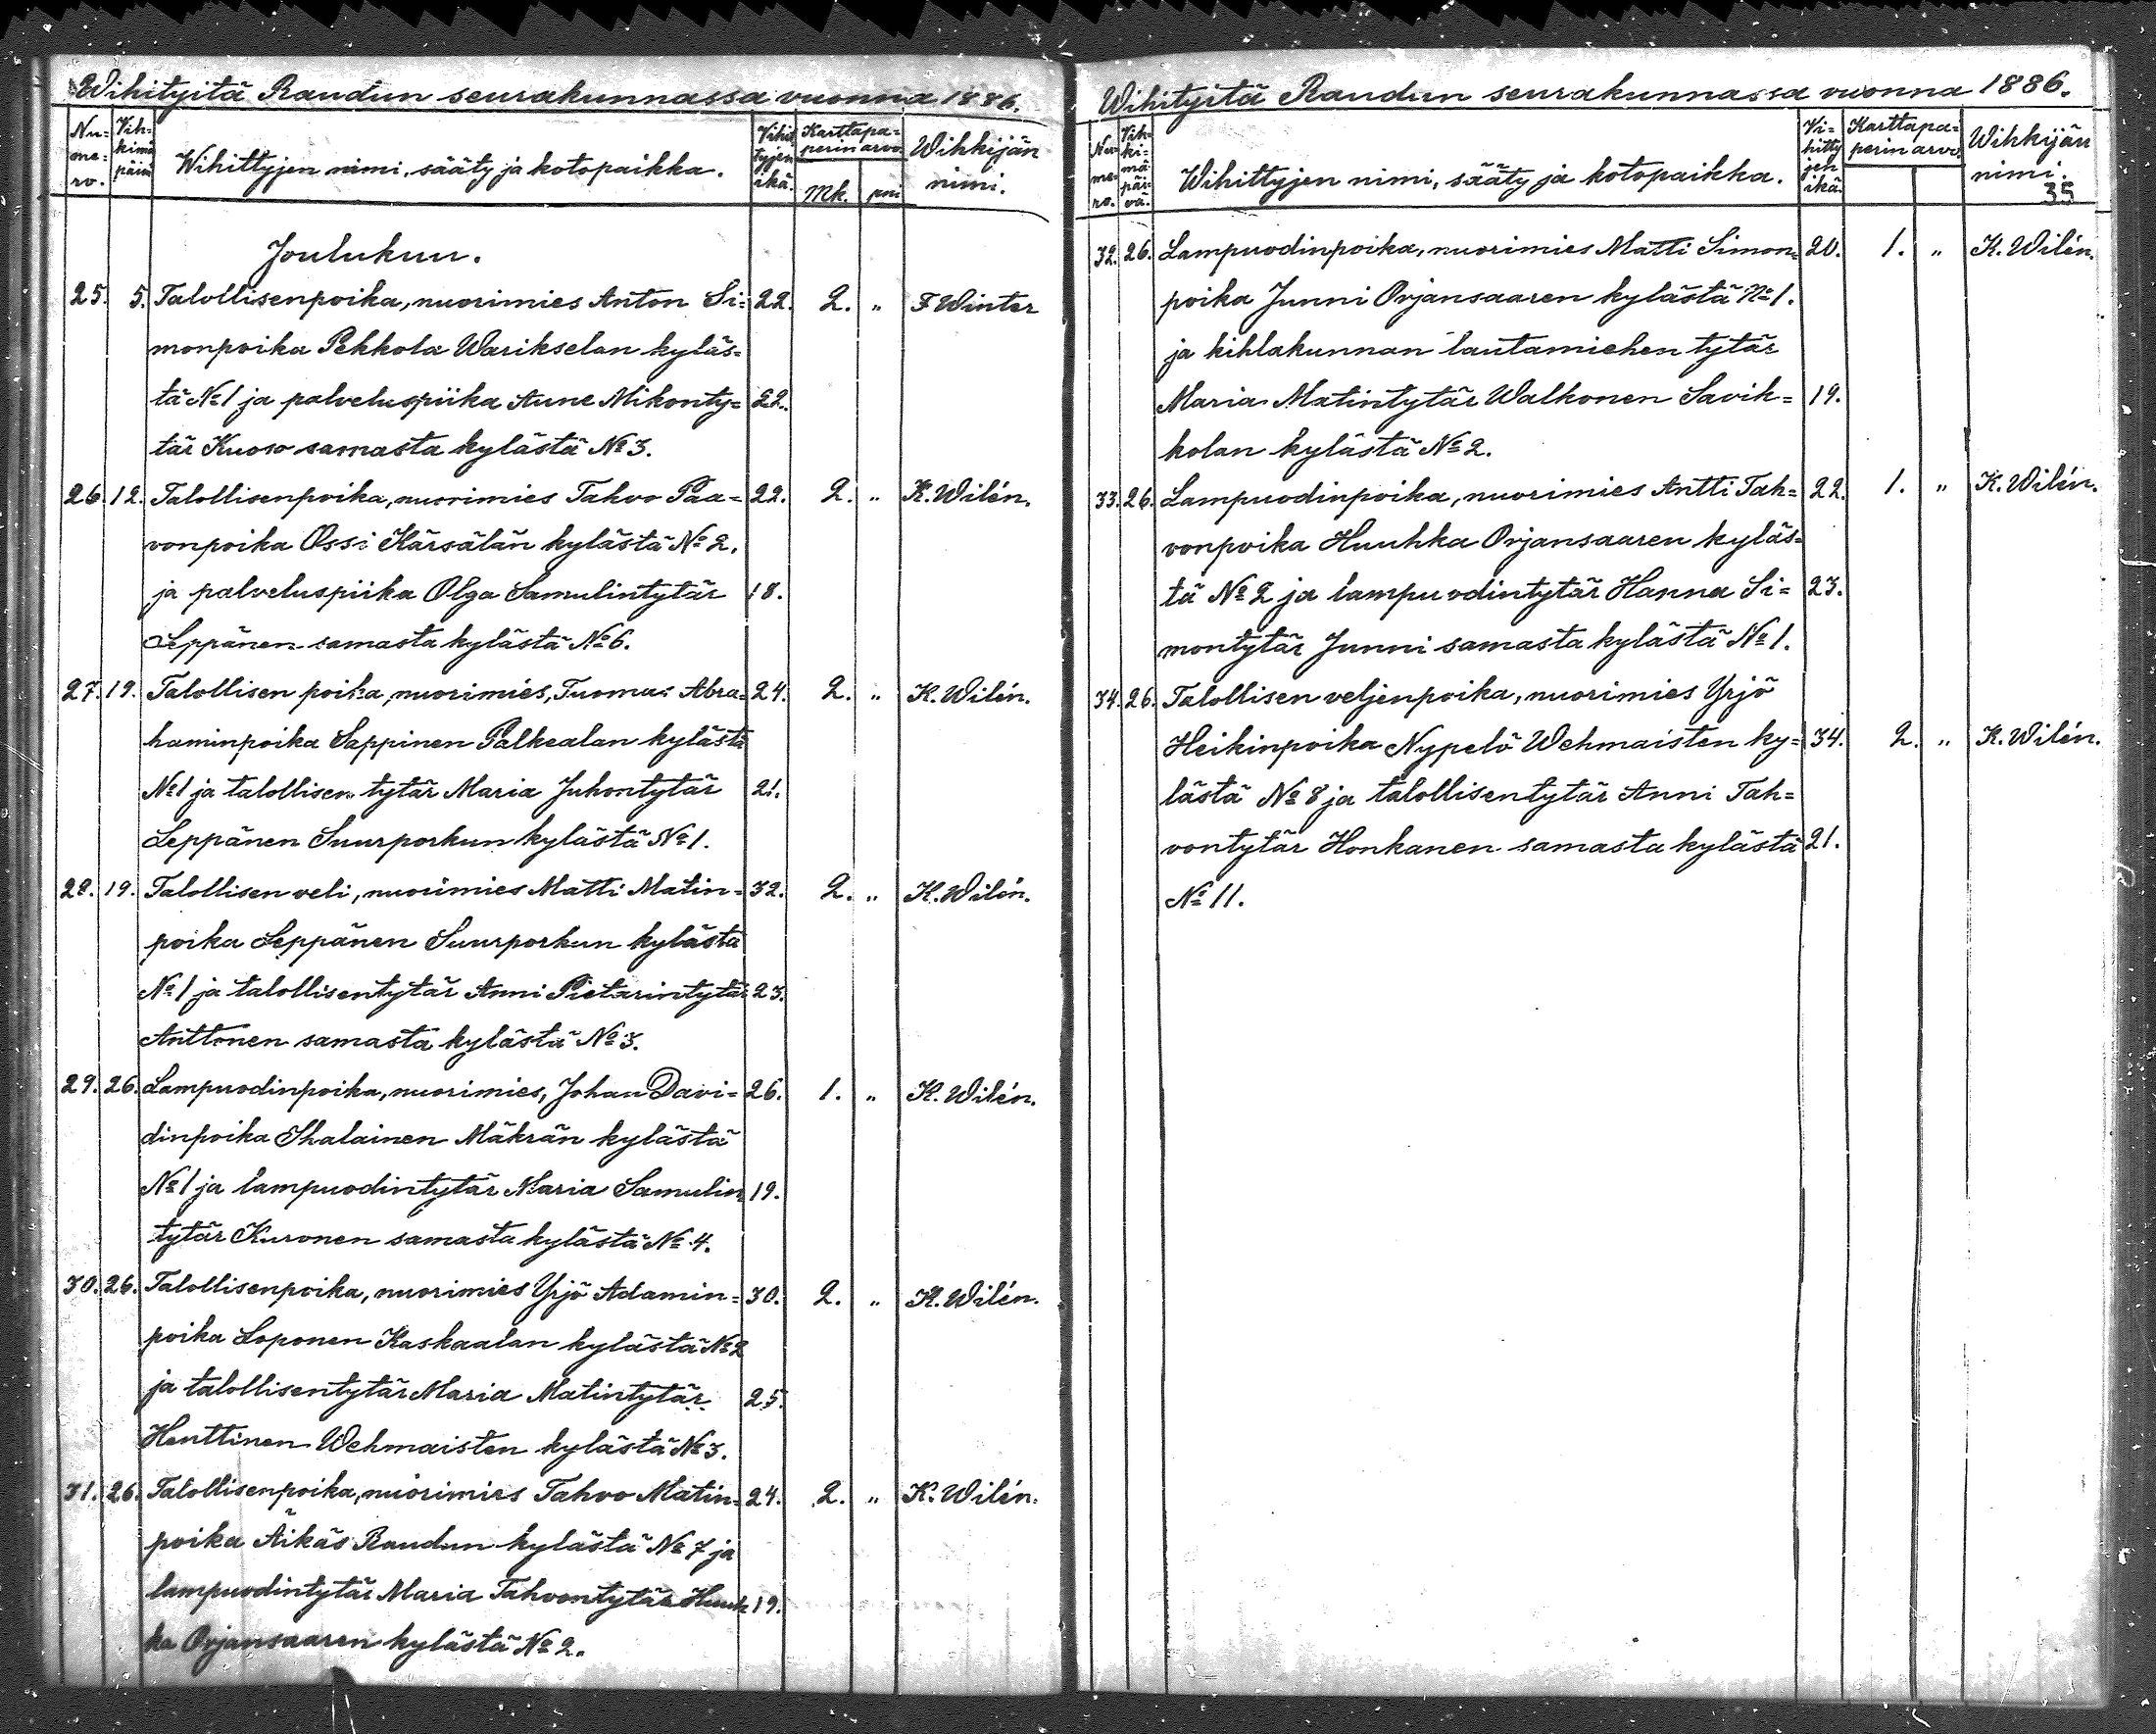 Wihityitä Raudun seurakunnassa vuonna 1886.
Nu=
me=
ro.
Vih=
kimä
päivä
Wihittyjen nimi, sääty ja kotopaikka.
Vihit
tyjen
ikä.
Karttapa=
perin arvo.
Mk. pni
Wihkijän
nimi.
Joulukuu.
25. 5. Talollisenpoika, nuorimies Anton Si= 22. 2. „ F Winter
monpoika Pekkola Warikselan kyläs=
tä No 1 ja palveluspiika Aune Mikonty= 22.
tär Kuoso samasta kylästä No 3.
26. 12. Talollisenpoika, nuorimies Tahvo Paa= 22. 2. „ K. Wilén.
vonpoika Ossi Kärsälän kylästä No 2.
ja palveluspiika Olga Samulintytär 18.
Leppänen samasta kylästä No 6.
27. 19. Talollisen poika, nuorimies, Tuomas Abra= 24. 2. „ K. Wilén.
haminpoika Sappinen Palkealan kylästä
No 1 ja talollisen tytär Maria Juhontytär 21.
Leppänen Suurporkun kylästä No 1.
28. 19. Talollisen veli, nuorimies Matti Matin= 32. 2. „ K. Wilén.
poika Leppänen Suurporkun kylästä
No 1 ja talollisentytär Anni Pietarintytär 23.
Anttonen samasta kylästä No 3.
29. 26. Lampuodinpoika, nuorimies, Johan Davi= 26. 1. „ K. Wilén.
dinpoika Ihalainen Mäkrän kylästä
No 1 ja lampuodintytär Maria Samulin 19.
tytär Kuronen samasta kylästä No 4.
30. 26. Talollisenpoika, nuorimies Yrjö Adamin= 30. 2. „ K. Wilén.
poika Loponen Kaskaalan kylästä No 2
ja talollisentytär Maria Matintytär 25.
Henttinen Wehmaisten kylästä No 3.
31. 26. Talollisenpoika, nuorimies Tahvo Matin= 24. 2. „ K. Wilén.
poika Äikäs Raudun kylästä No 7 ja
lampuodintytär Maria Tahvontytär Huuh 19.
ka Orjansaaren kylästä No 2.
Wihityitä Raudun seurakunnassa vuonna 1886.
Nu=
me=
ro.
Vih=
ki=
mä
päi=
vä.
Wihittyjen nimi, sääty ja kotopaikka.
Vi=
hitty
jen
ikä.
Karttapa=
perin arvo.
Wihkijän
nimi.
35
32. 26. Lampuodinpoika, nuorimies Matti Simon= 20. 1. „ K. Wilén.
poika Junni Orjansaaren kylästä No 1.
ja kihlakunnan lautamiehen tytär
Maria Matintytär Walkonen Savik= 19.
kolan kylästä No 2.
33. 26. Lampuodinpoika, nuorimies Antti Tah= 22. 1. „ K. Wilén.
vonpoika Huuhka Orjansaaren kyläs=
tä No 2 ja lampuodintytär Hanna Si= 23.
montytär Junni samasta kylästä No 1.
34. 26. Talollisen veljenpoika, nuorimies Yrjö
Heikinpoika Nypelö Wehmaisten ky= 34. 2. „ K. Wilén.
lästä No 8 ja talollisentytär Anni Tah=
vontytär Honkanen samasta kylästä 21.
No 11.